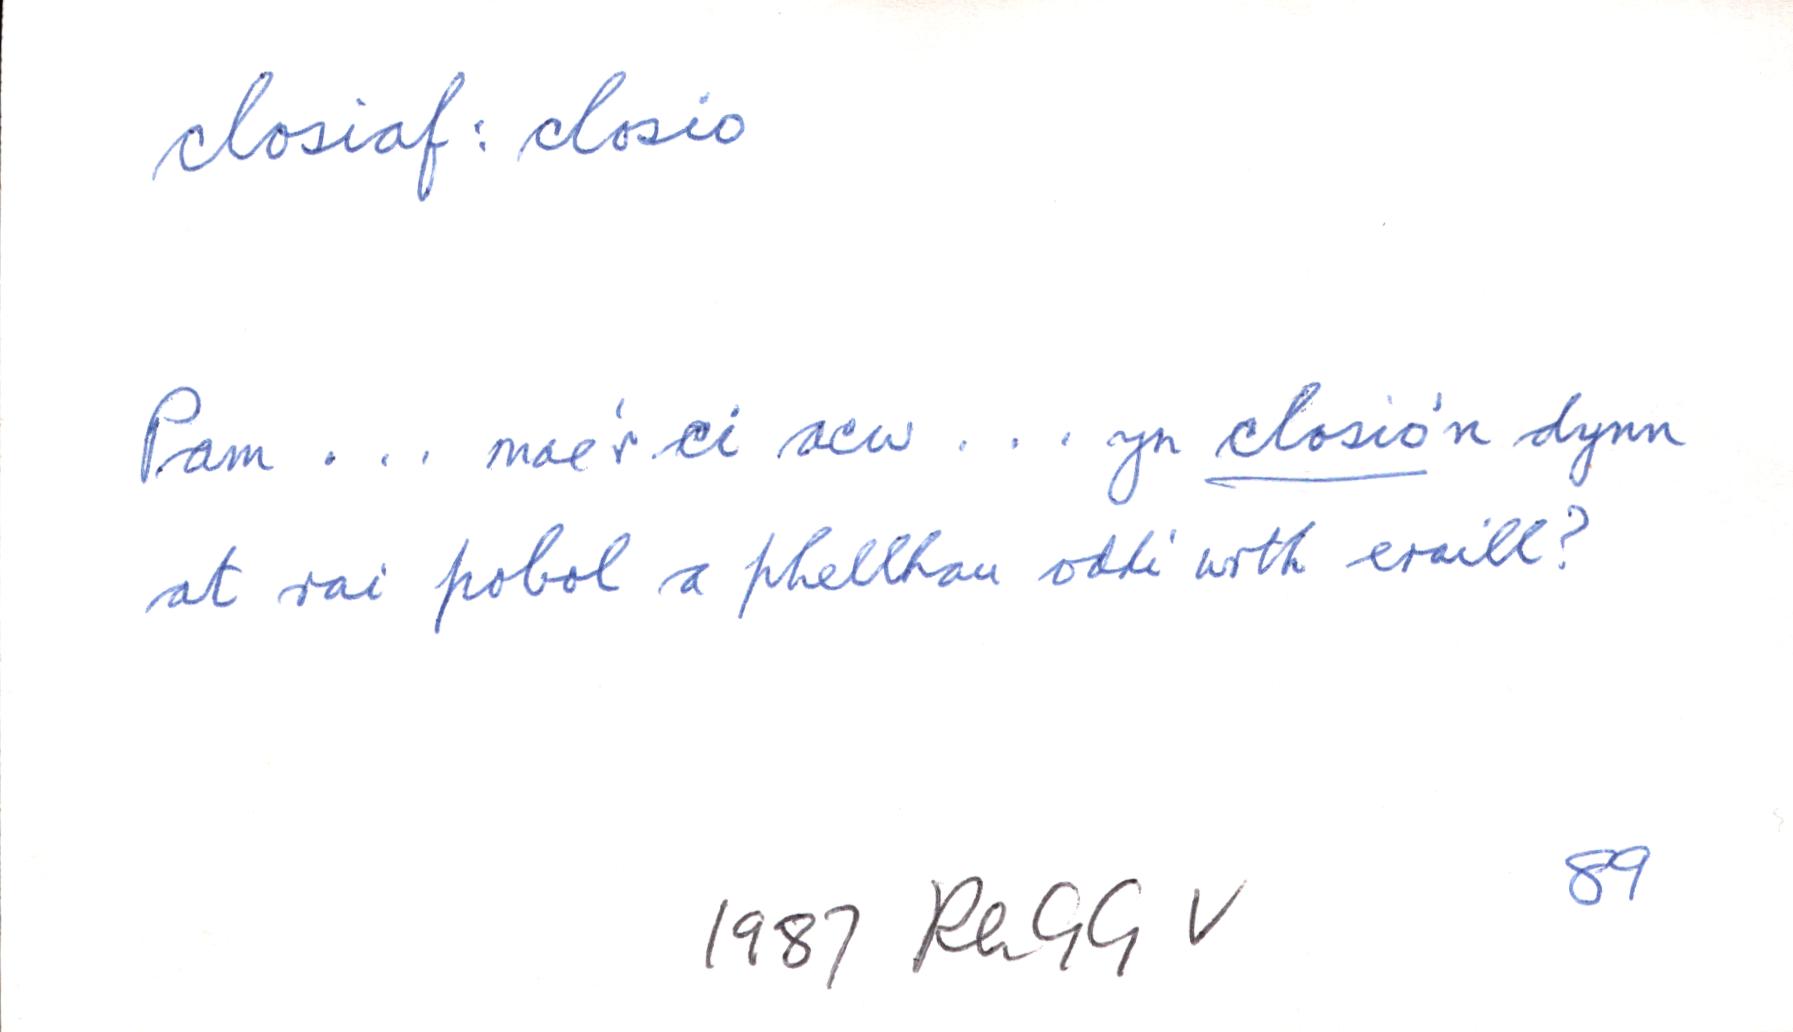 closiaf: closio
Pam . . . mae'r ci acw . . . yn closio'n dynn
at rai pobol a phellhau oddi wrth eraill?
89
1987 RhGG V